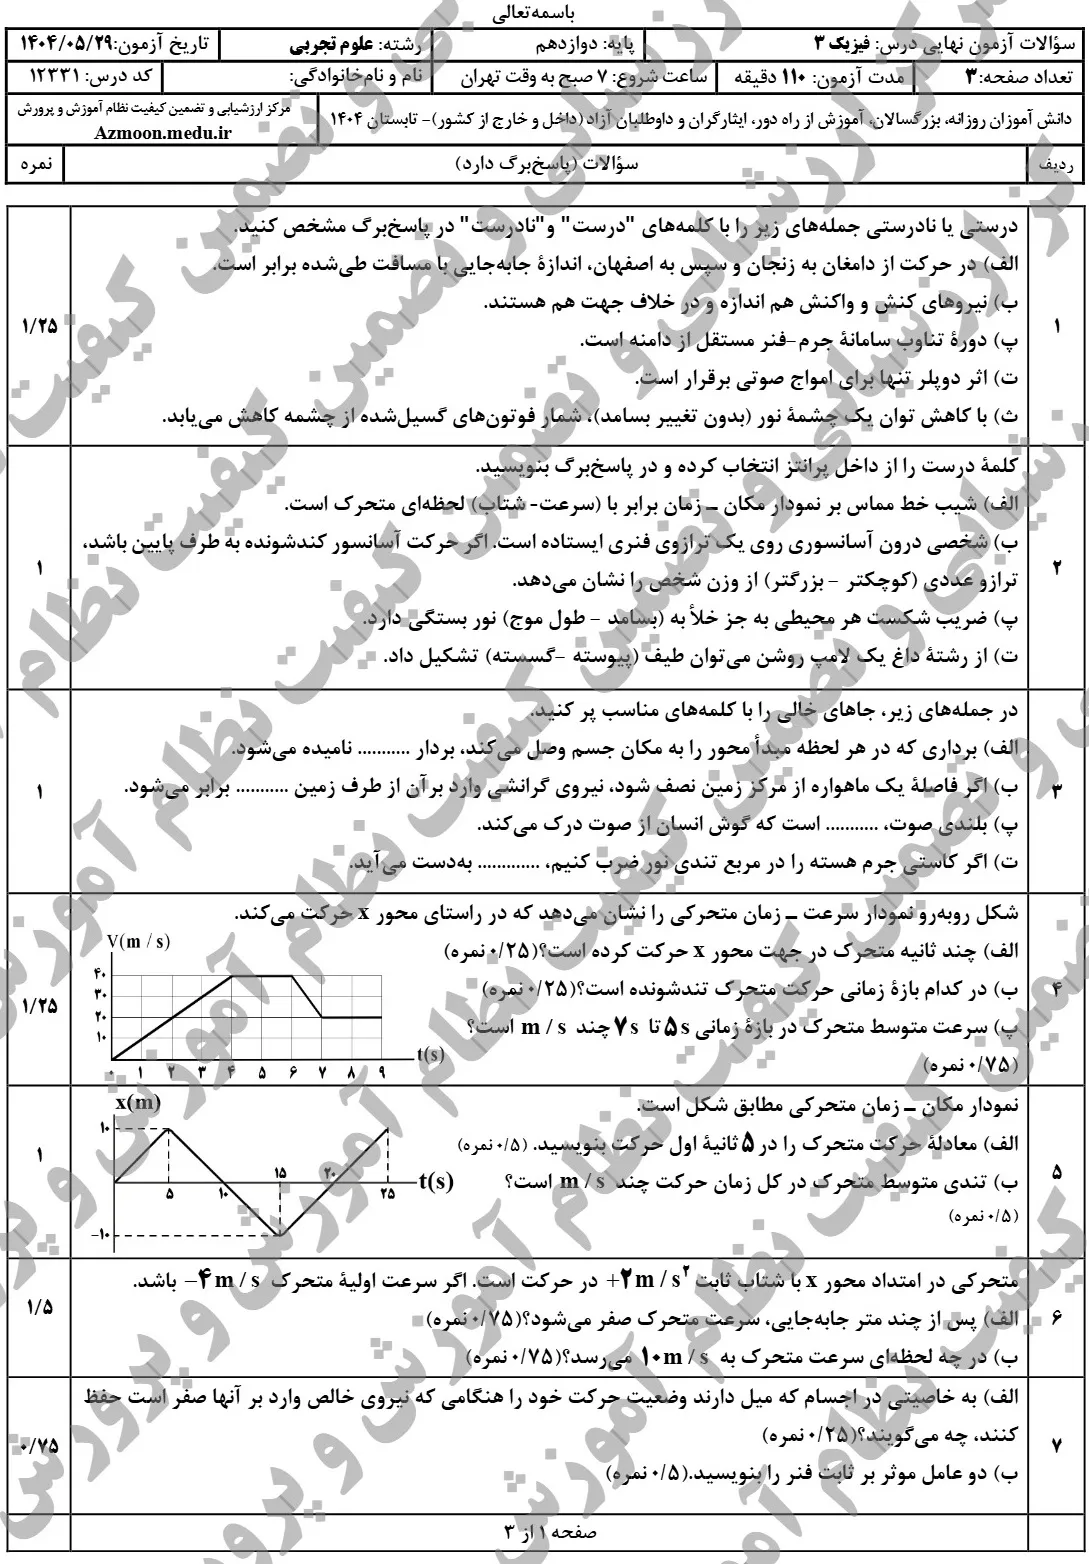 باسمه‌تعالی
سؤالات آزمون نهایی درس: فیزیک ۳ پایه: دوازدهم رشته: علوم تجربی تاریخ آزمون:۱۴۰۴/۰۵/۲۹
تعداد صفحه:۳ مدت آزمون: ۱۱۰ دقیقه ساعت شروع: ۷ صبح به وقت تهران نام و نام‌خانوادگی: کد درس: ۱۲۳۳۱
دانش آموزان روزانه، بزرگسالان، آموزش از راه دور، ایثارگران و داوطلبان آزاد (داخل و خارج از کشور)- تابستان ۱۴۰۴ مرکز ارزشیابی و تضمین کیفیت نظام آموزش و پرورش
Azmoon.medu.ir
ردیف سؤالات (پاسخ‌برگ دارد) نمره
۱ ۱/۲۵
درستی یا نادرستی جمله‌های زیر را با کلمه‌های "درست" و"نادرست" در پاسخ‌برگ مشخص کنید.
الف) در حرکت از دامغان به زنجان و سپس به اصفهان، اندازۀ جابه‌جایی با مسافت طی‌شده برابر است.
ب) نیروهای کنش و واکنش هم اندازه و در خلاف جهت هم هستند.
پ) دورۀ تناوب سامانۀ جرم-فنر مستقل از دامنه است.
ت) اثر دوپلر تنها برای امواج صوتی برقرار است.
ث) با کاهش توان یک چشمۀ نور (بدون تغییر بسامد)، شمار فوتون‌های گسیل‌شده از چشمه کاهش می‌یابد.
۲ ۱
کلمۀ درست را از داخل پرانتز انتخاب کرده و در پاسخ‌برگ بنویسید.
الف) شیب خط مماس بر نمودار مکان ـ زمان برابر با (سرعت- شتاب) لحظه‌ای متحرک است.
ب) شخصی درون آسانسوری روی یک ترازوی فنری ایستاده است. اگر حرکت آسانسور کندشونده به طرف پایین باشد،
ترازو عددی (کوچکتر - بزرگتر) از وزن شخص را نشان می‌دهد.
پ) ضریب شکست هر محیطی به جز خلأ به (بسامد - طول موج) نور بستگی دارد.
ت) از رشتۀ داغ یک لامپ روشن می‌توان طیف (پیوسته -گسسته) تشکیل داد.
۳ ۱
در جمله‌های زیر، جاهای خالی را با کلمه‌های مناسب پر کنید.
الف) برداری که در هر لحظه مبدأ محور را به مکان جسم وصل می‌کند، بردار ........... نامیده می‌شود.
ب) اگر فاصلۀ یک ماهواره از مرکز زمین نصف شود، نیروی گرانشی وارد برآن از طرف زمین ........... برابر می‌شود.
پ) بلندی صوت، ........... است که گوش انسان از صوت درک می‌کند.
ت) اگر کاستی جرم هسته را در مربع تندی نور ضرب کنیم، ............. به‌دست می‌آید.
۴ ۱/۲۵
شکل روبه‌رو نمودار سرعت ـ زمان متحرکی را نشان می‌دهد که در راستای محور x حرکت می‌کند.
الف) چند ثانیه متحرک در جهت محور x حرکت کرده است؟(۰/۲۵ نمره)
ب) در کدام بازۀ زمانی حرکت متحرک تندشونده است؟(۰/۲۵ نمره)
پ) سرعت متوسط متحرک در بازۀ زمانی ۵s تا ۷s چند m / s است؟
(۰/۷۵ نمره)
V(m / s)
۴۰
۳۰
۲۰
۱۰
۰ ۱ ۲ ۳ ۴ ۵ ۶ ۷ ۸ ۹ t(s)
۵ ۱
نمودار مکان ـ زمان متحرکی مطابق شکل است.
الف) معادلۀ حرکت متحرک را در ۵ ثانیۀ اول حرکت بنویسید. (۰/۵ نمره)
ب) تندی متوسط متحرک در کل زمان حرکت چند m / s است؟
(۰/۵ نمره)
x(m)
۱۰
۵ ۱۰ ۱۵ ۲۰ ۲۵ t(s)
-۱۰
۶ ۱/۵
متحرکی در امتداد محور x با شتاب ثابت +۲m / s۲ در حرکت است. اگر سرعت اولیۀ متحرک -۴m / s باشد.
الف) پس از چند متر جابه‌جایی، سرعت متحرک صفر می‌شود؟(۰/۷۵ نمره)
ب) در چه لحظه‌ای سرعت متحرک به ۱۰m / s می‌رسد؟(۰/۷۵ نمره)
۷ ۰/۷۵
الف) به خاصیتی در اجسام که میل دارند وضعیت حرکت خود را هنگامی که نیروی خالص وارد بر آنها صفر است حفظ
کنند، چه می‌گویند؟(۰/۲۵ نمره)
ب) دو عامل موثر بر ثابت فنر را بنویسید.(۰/۵ نمره)
صفحه ۱ از ۳
مرکز ارزشیابی و تضمین کیفیت نظام آموزش و پرورش